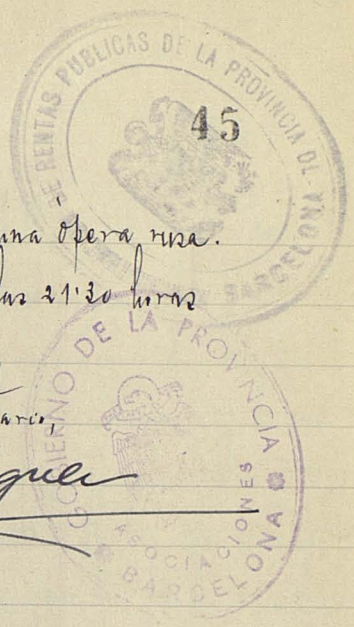 DE RENTAS PUBLICAS DE LA PROVINCIA DE BARCELONA
45
una ópera rusa.
las 21'30 horas
GOBIERNO DE LA PROVINCIA
ASOCIACIONES
BARCELONA